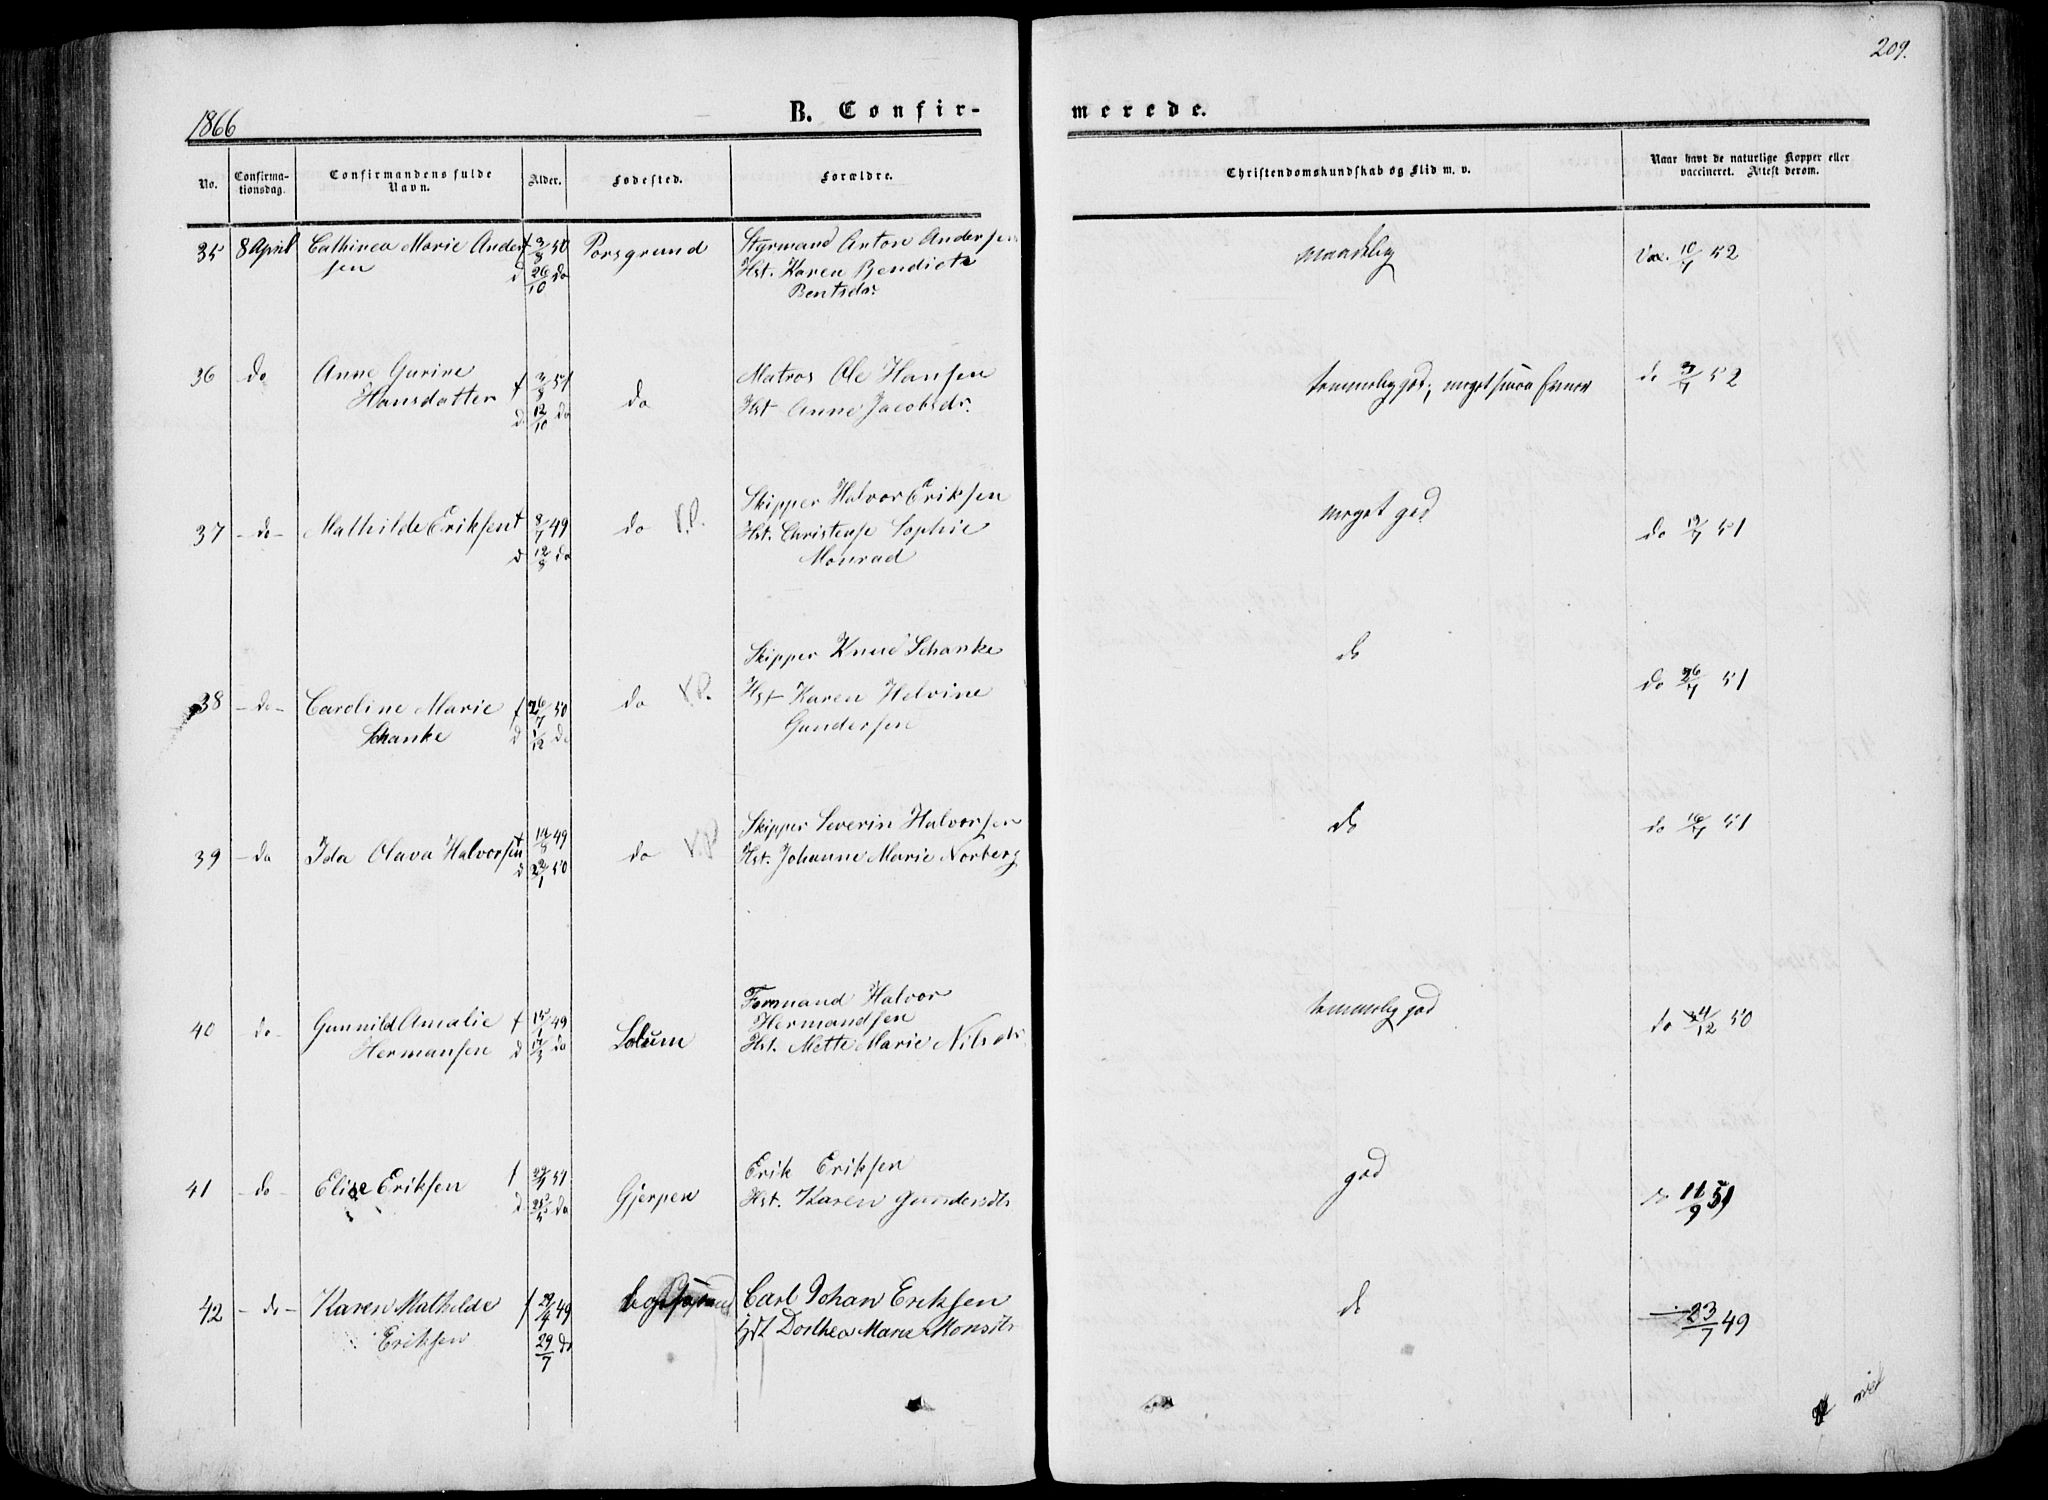 209.
1866
B. Confir-
merede.
No.
Confirma-
tionsdag.
Confirmandens fulde
Navn.
Alder.
Fødested.
Forældre.
Christendomskundskab og Flid m. v.
Naar havt de naturlige Kopper eller
vaccineret. Attest derom.
35 8 April Cathinca Marie Ander f 3/8 50 Porsgrund Styrmand Anton Andersen
sen d 26/10 do Hst. Karen Bendicte
Bentsdr.
maadelig Vac. 10/7 52
36 do Anne Gurine f 3/8 51 do Matros Ole Hansen
Hansdatter d 12/10 do Hst Anne Jacobsdr.
temmelig god; meget svare Evner do 3/7 52
37 - do - Mathilde Eriksen f 8/7 49 do V.P. Skipper Halvor Eriksen
d 12/8 do Hst. Christense Sophie
Monrad
meget god do 19/7 51
38 - do - Caroline Marie f 26/7 50 do V.P. Skipper Knud Schanke
Schanke d 1/12 do Hst Karen Helvine
Gundersen
do do 26/7 51
39 - do Ida Olava Halvorsen f 14/8 49 do V.P. Skipper Severin Halvorsen
d 22/1 50 Hst. Johanne Marie Norberg
do do 16/7 51
40 - do - Gunnild Amalie f 15/1 49 Solum Formand Halvor
Hermansen d 17/3 do Hermandsen
Hst. Mette Marie Nilsdr
temmelig god do 24/12 50
41 - do - Elise Eriksen f 51 Gjerpen Erik Eriksen
d do Hst. Karen Gundersdtr
god do 11/9 51
42 - do - Karen Mathilde f 29/4 49 Carl Johan Eriksen
Eriksen 29/7 do Hst Dorthea Marie Monsdtr
do 23/7 49